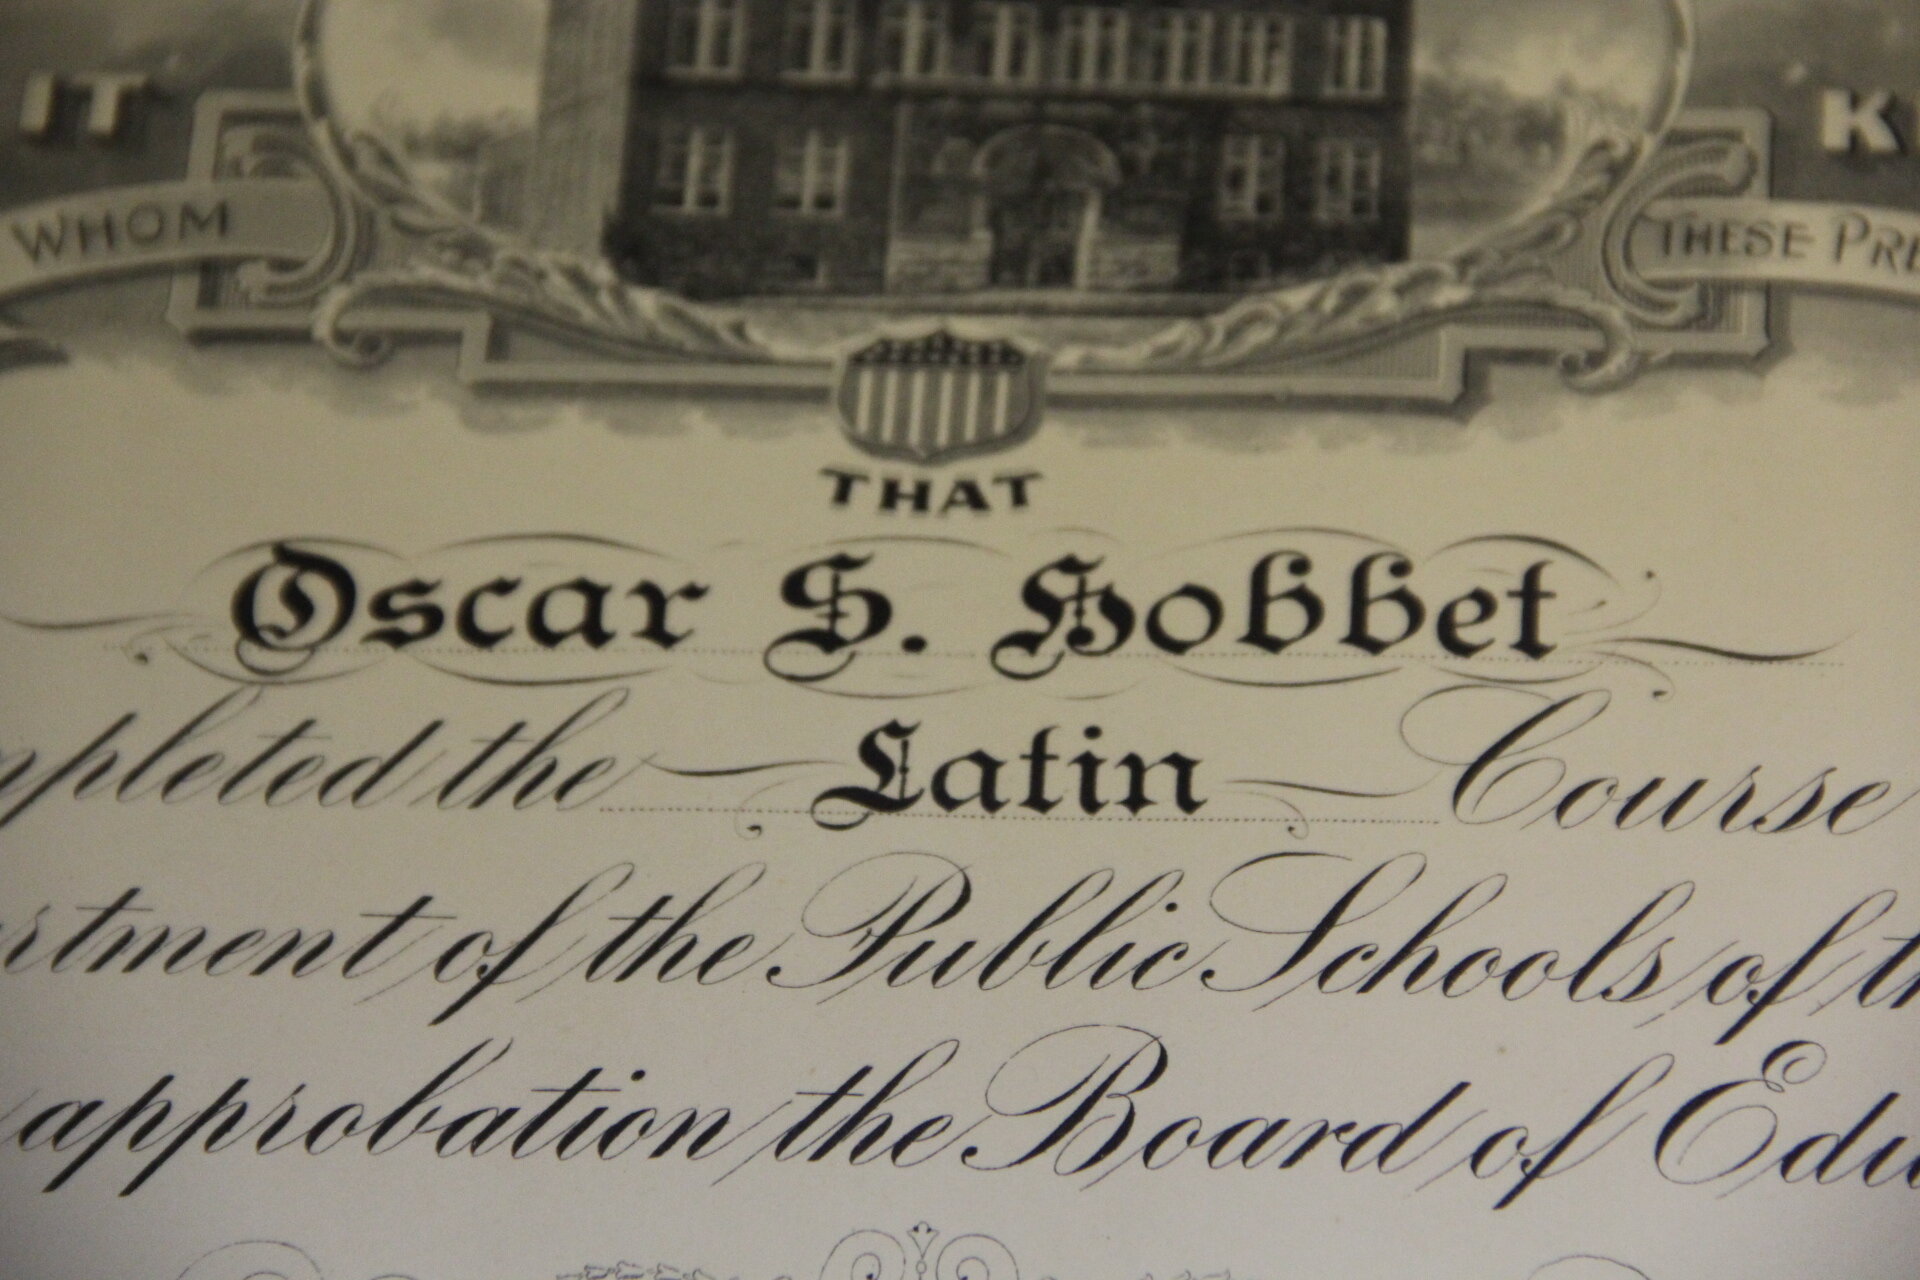 IT K
WHOM THESE PRE
THAT
Oscar S. Hobbet
mpleted the Latin Course
rtment of the Public Schools of th
approbation the Board of Edu